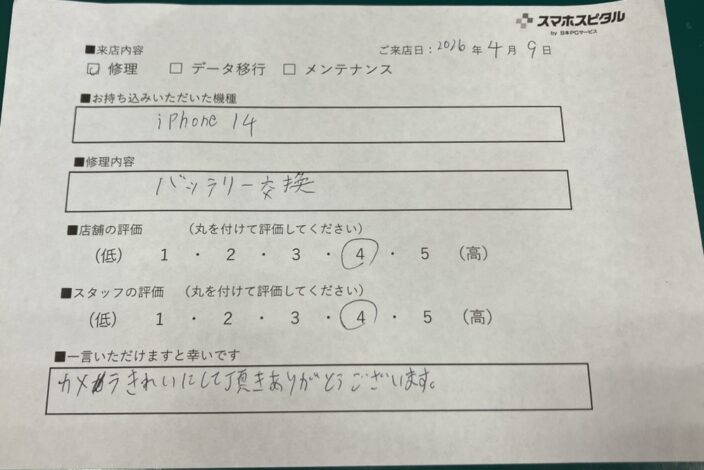 スマホスピタル
by 日本PCサービス
■来店内容 ご来店日：2026年4月9日
☑ 修理 □ データ移行 □ メンテナンス
■お持ち込みいただいた機種
iPhone 14
■修理内容
バッテリー交換
■店舗の評価 （丸を付けて評価してください）
（低） 1 ・ 2 ・ 3 ・ 4 ・ 5 （高）
■スタッフの評価 （丸を付けて評価してください）
（低） 1 ・ 2 ・ 3 ・ 4 ・ 5 （高）
■一言いただけますと幸いです
カメラきれいにして頂きありがとうございます。